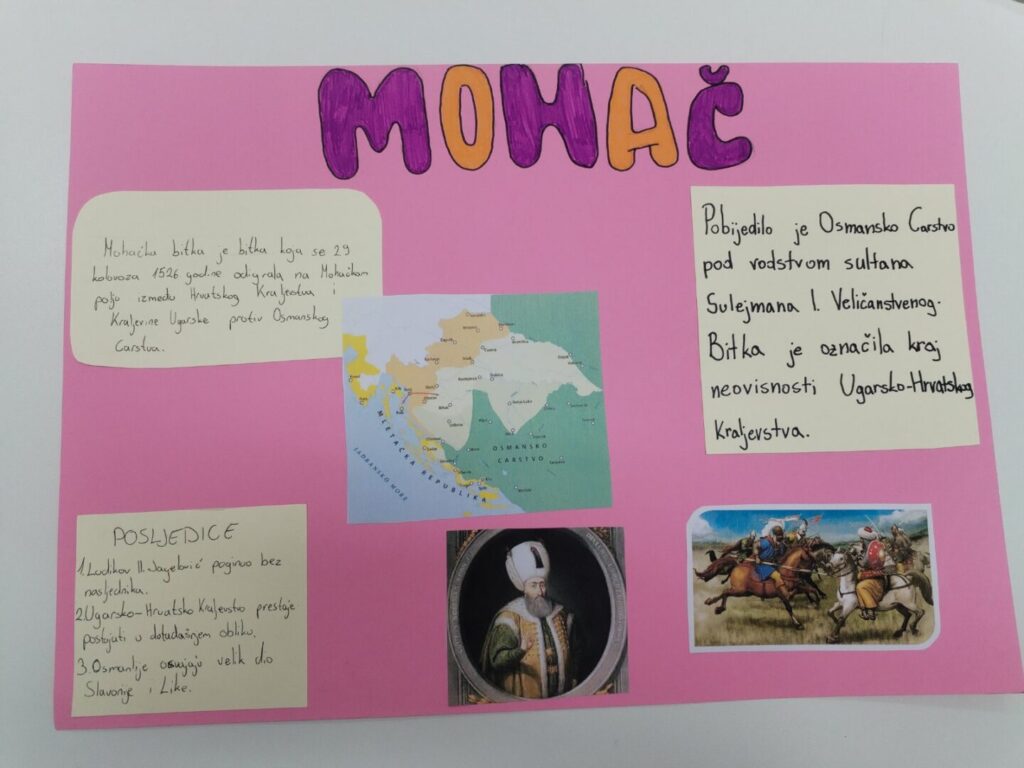 MOHAČ
Mohačka bitka je bitka koja se 29
kolovoza 1526 godine odigrala na Mohačkom
polju između Hrvatskog Kraljevstva i
Kraljevine Ugarske protiv Osmanskog
Carstva.
Pobijedilo je Osmansko Carstvo
pod vodstvom sultana
Sulejmana I. Veličanstvenog.
Bitka je označila kraj
neovisnosti Ugarsko-Hrvatskog
Kraljevstva.
MLETAČKA REPUBLIKA
JADRANSKO MORE
OSMANSKO
CARSTVO
POSLJEDICE
1. Ludikov II. Jagelović poginuo bez
nasljednika.
2. Ugarsko-Hrvatsko Kraljevstvo prestaje
postojati u dotadašnjem obliku.
3. Osmanlije osvajaju velik dio
Slavonije i Like.